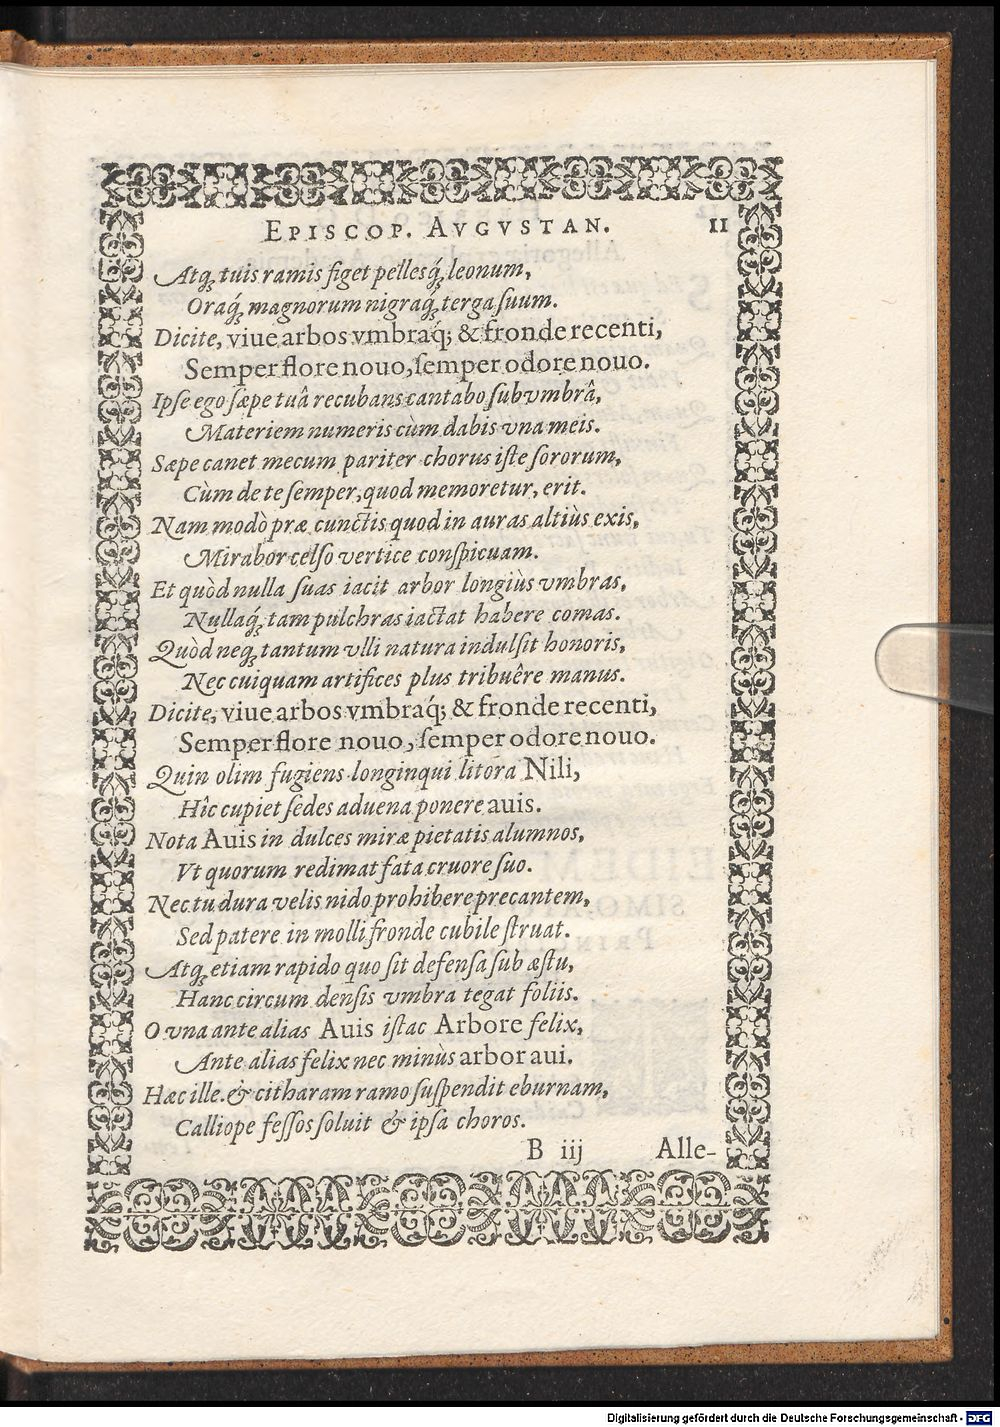 EPISCOP. AVGVSTAN. 11
Atq́; tuis ramis figet pellesq́; leonum,
Oraq́; magnorum nigraq́; terga suum.
Dicite, viue arbos vmbraq́; & fronde recenti,
Semper flore nouo, semper odore nouo.
Ipse ego sæpe tuâ recubans cantabo sub vmbrâ,
Materiem numeris cùm dabis vna meis.
Sæpe canet mecum pariter chorus iste sororum,
Cùm de te semper, quod memoretur, erit.
Nam modò præ cunctis quod in auras altiùs exis,
Mirabor celso vertice conspicuam.
Et quòd nulla suas iacit arbor longiùs vmbras,
Nullaq́; tam pulchras iactat habere comas.
Quòd neq; tantum vlli natura indulsit honoris,
Nec cuiquam artifices plus tribuêre manus.
Dicite, viue arbos vmbraq́; & fronde recenti,
Semper flore nouo, semper odore nouo.
Quin olim fugiens longinqui litora Nili,
Hîc cupiet sedes aduena ponere auis.
Nota Auis in dulces miræ pietatis alumnos,
Vt quorum redimat fata cruore suo.
Nec tu dura velis nido prohibere precantem,
Sed patere in molli fronde cubile struat.
Atq; etiam rapido quo sit defensa sub æstu,
Hanc circum densis vmbra tegat foliis.
O vna ante alias Auis istac Arbore felix,
Ante alias felix nec minùs arbor aui.
Hæc ille. & citharam ramo suspendit eburnam,
Calliope fessos soluit & ipsa choros.
B iij Alle-
Digitalisierung gefördert durch die Deutsche Forschungsgemeinschaft - DFG